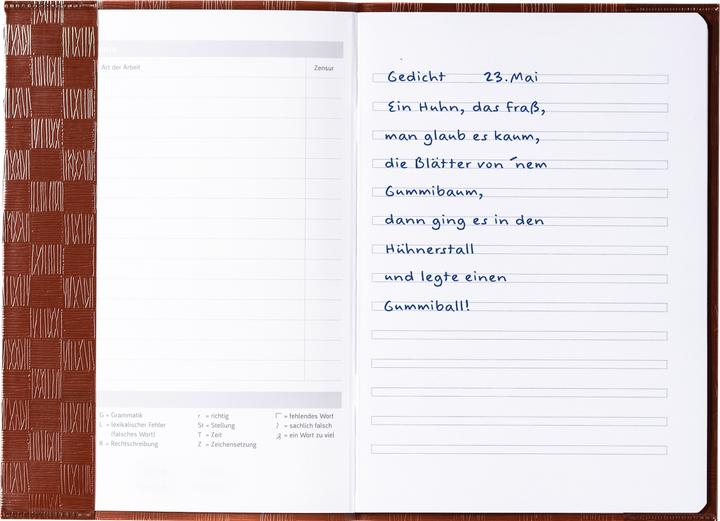 Art der Arbeit Zensur
G = Grammatik
L = lexikalischer Fehler
(falsches Wort)
R = Rechtschreibung
r = richtig
St = Stellung
T = Zeit
Z = Zeichensetzung
= fehlendes Wort
= sachlich falsch
= ein Wort zu viel
Gedicht 23. Mai
Ein Huhn, das fraß,
man glaub es kaum,
die Blätter von ´nem
Gummibaum,
dann ging es in den
Hühnerstall
und legte einen
Gummiball!